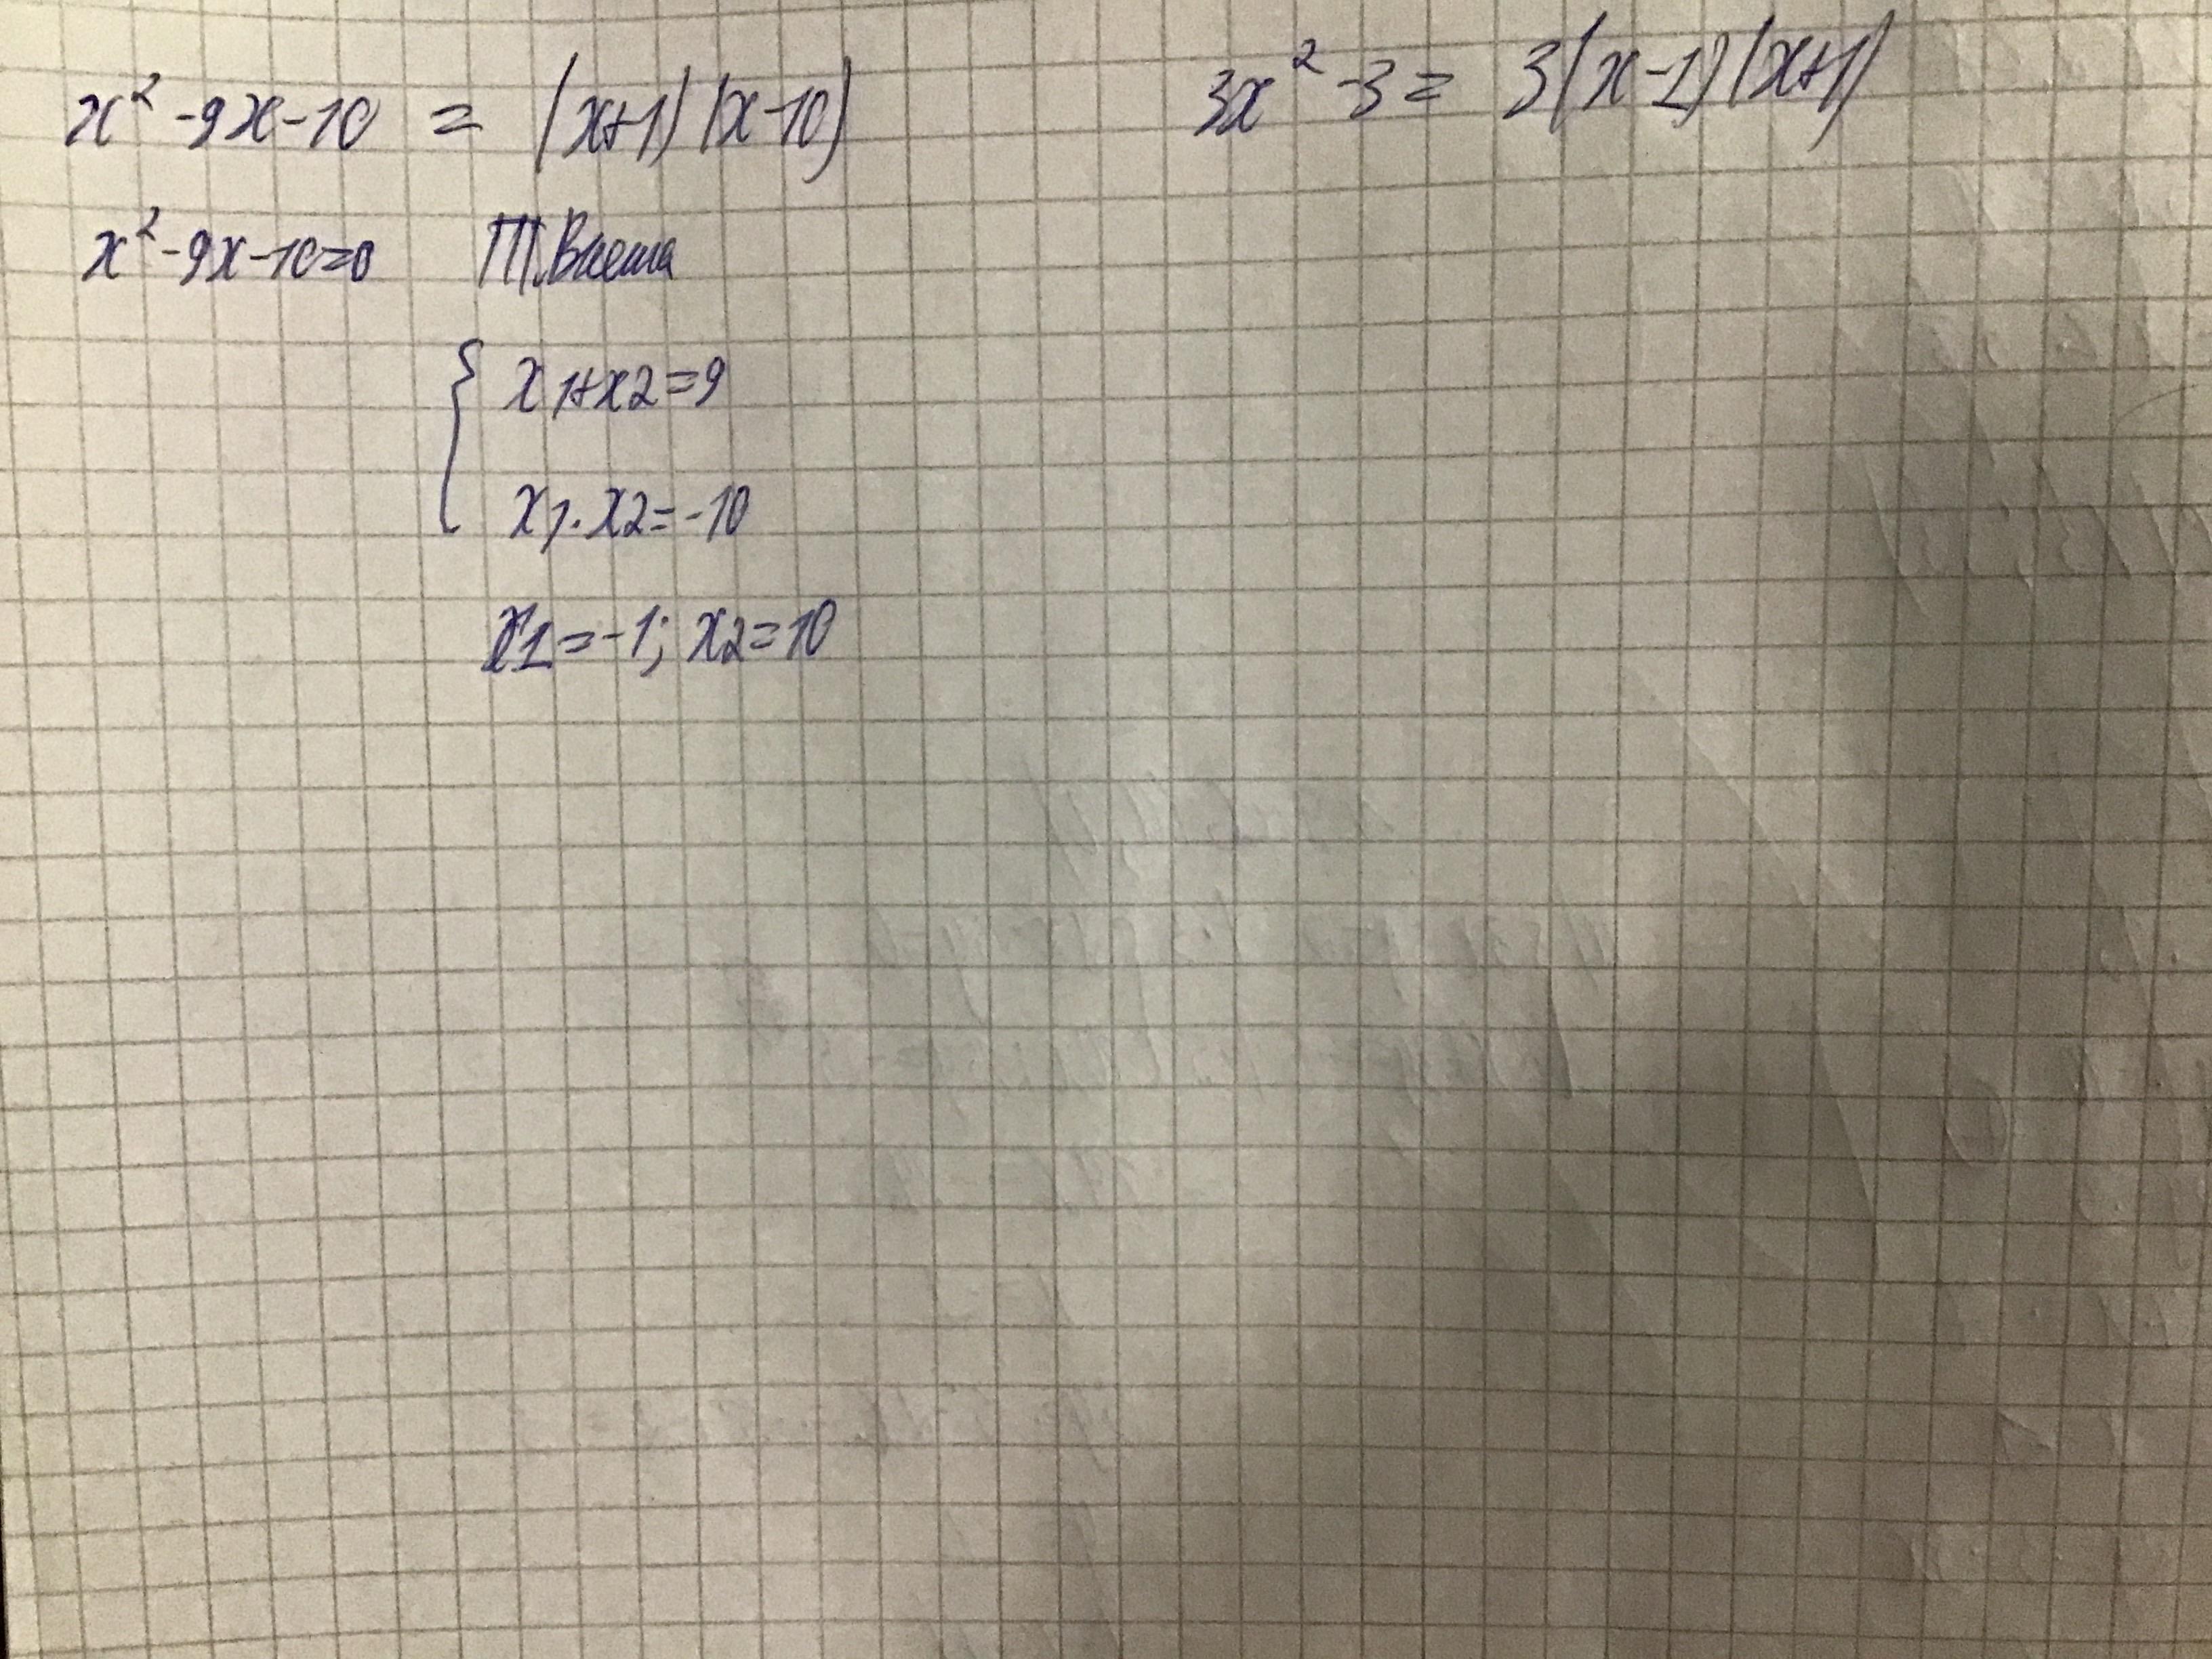 x² - 9x - 10 = (x+1)(x-10)
3x² - 3 = 3(x-1)(x+1)
x² - 9x - 10 = 0 Т.Виета
{ x1 + x2 = 9
x1 · x2 = -10
x1 = -1; x2 = 10